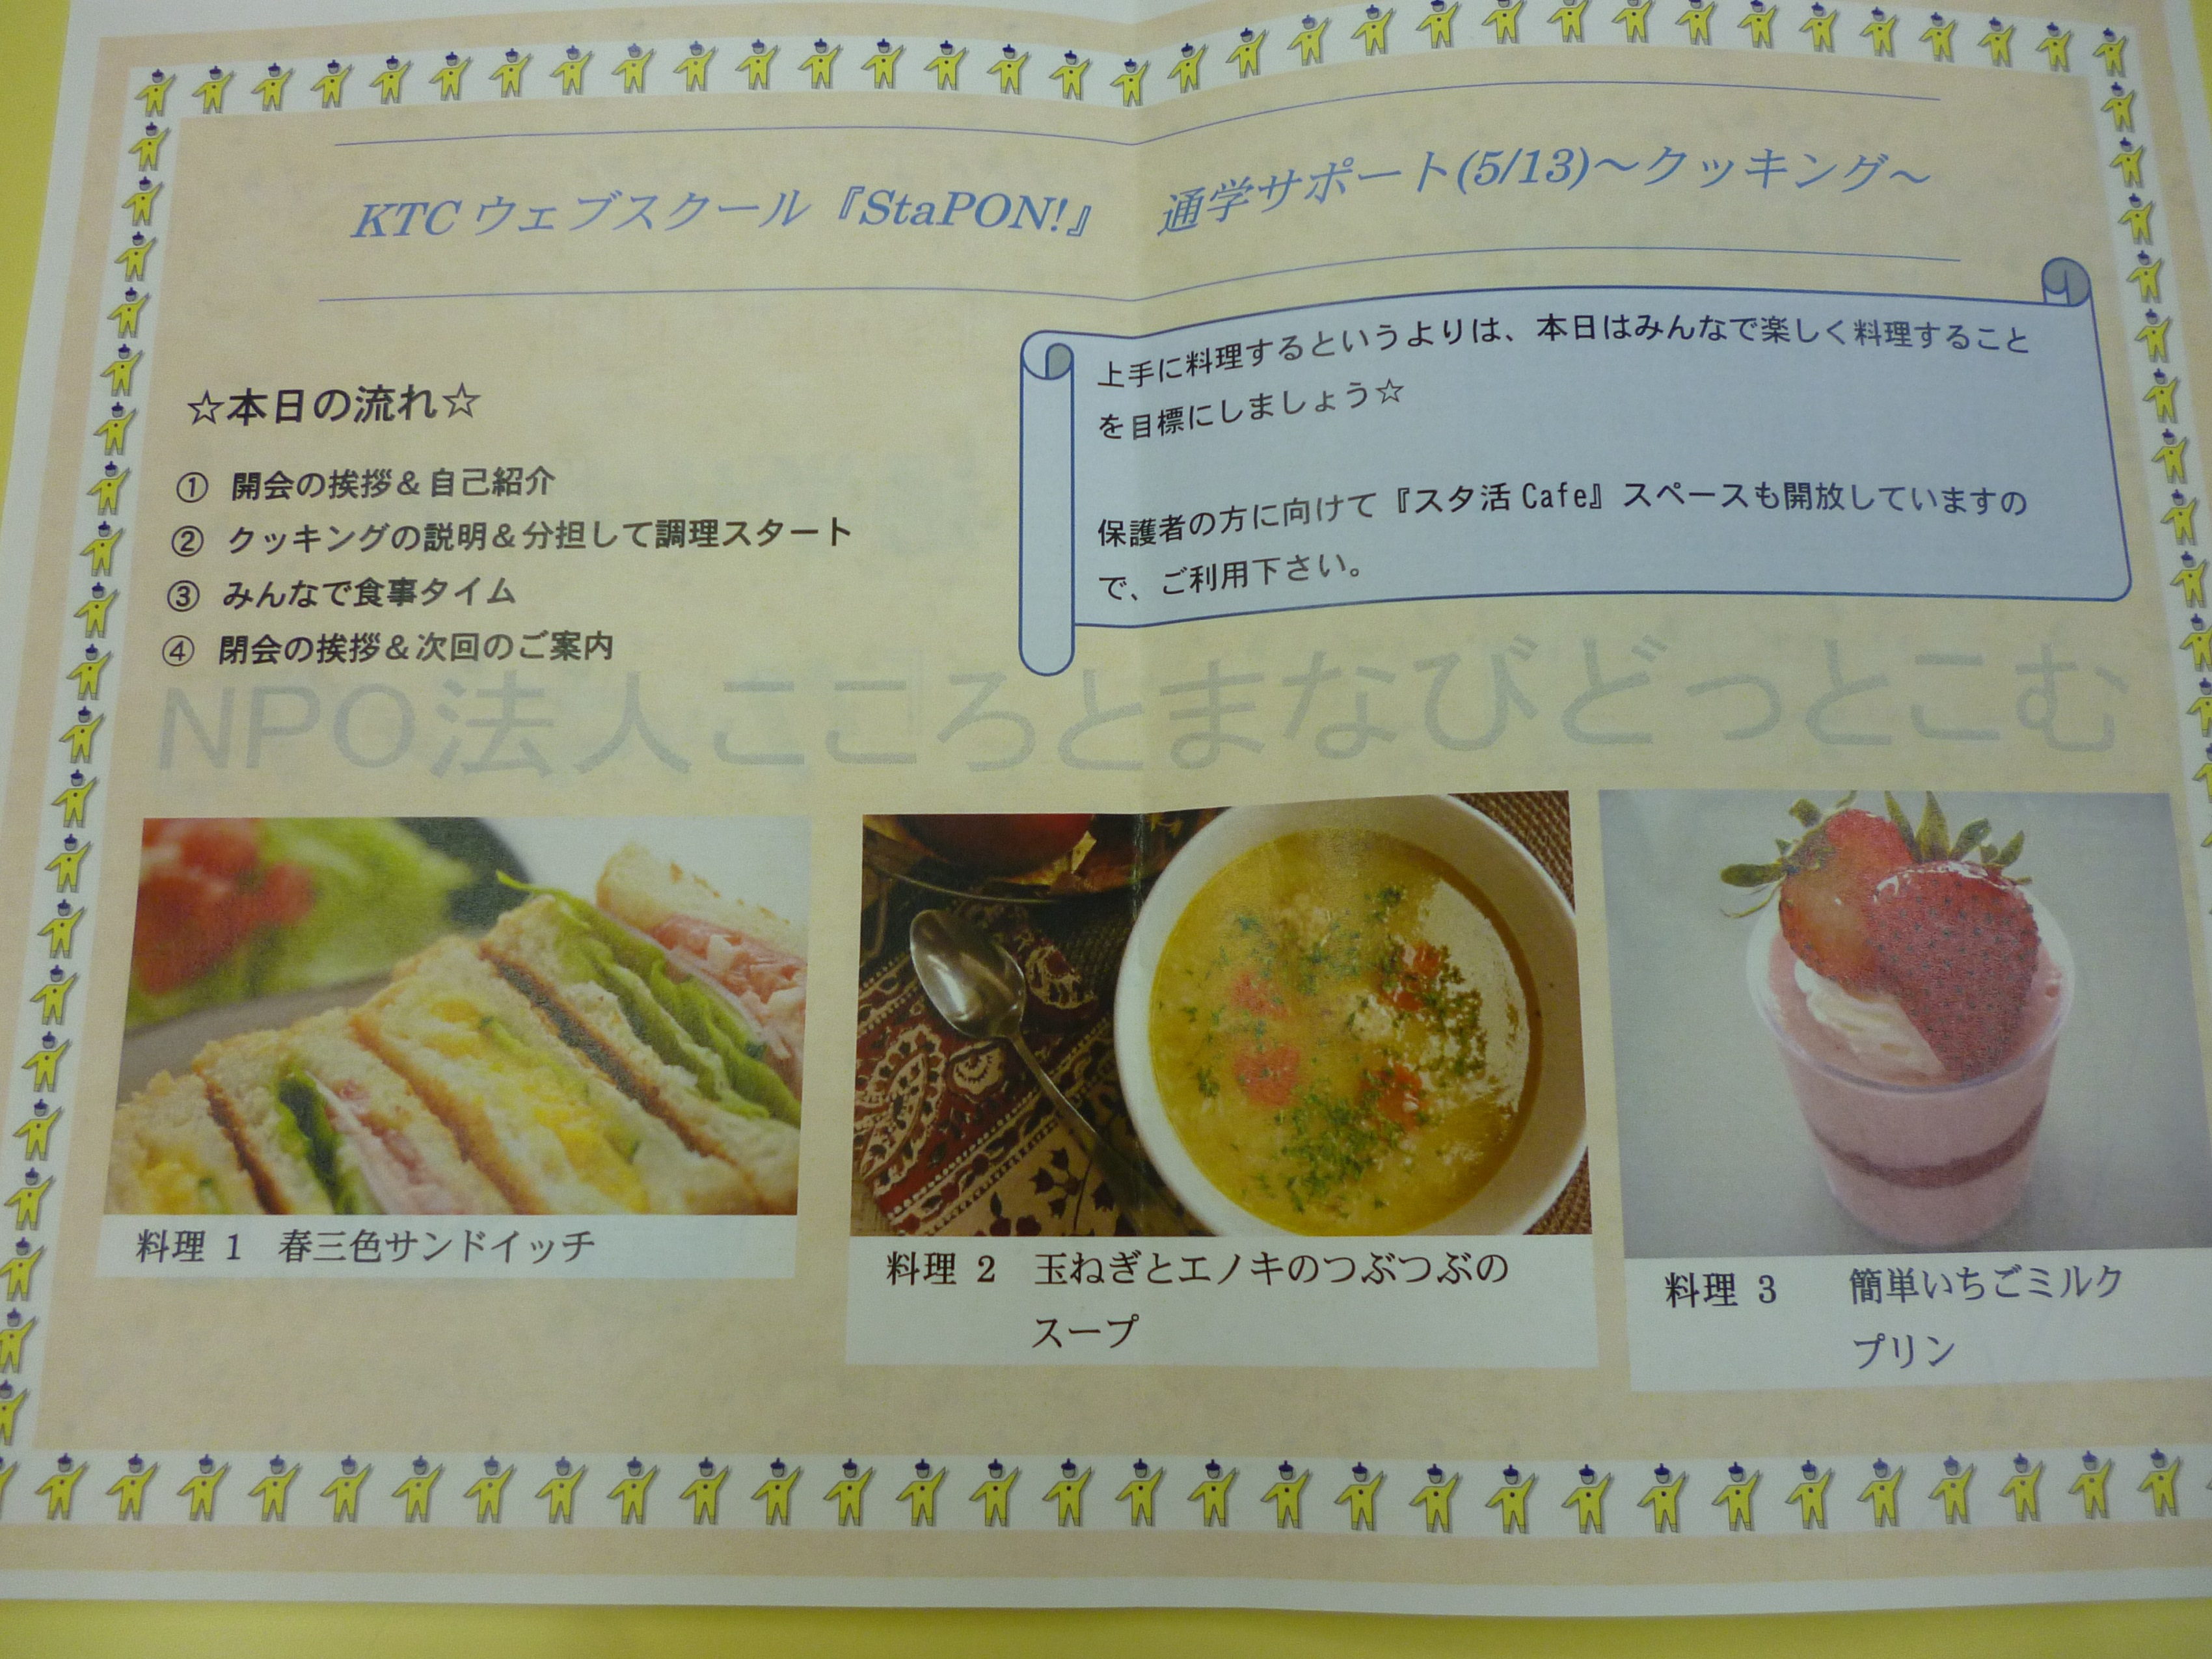 KTCウェブスクール『StaPON!』　通学サポート(5/13)～クッキング～
☆本日の流れ☆
① 開会の挨拶＆自己紹介
② クッキングの説明＆分担して調理スタート
③ みんなで食事タイム
④ 閉会の挨拶＆次回のご案内
上手に料理するというよりは、本日はみんなで楽しく料理すること
を目標にしましょう☆
保護者の方に向けて『スタ活 Cafe』スペースも開放していますの
で、ご利用下さい。
NPO法人こころとまなびどっとこむ
料理 1　春三色サンドイッチ
料理 2　玉ねぎとエノキのつぶつぶの
スープ
料理 3　簡単いちごミルク
プリン